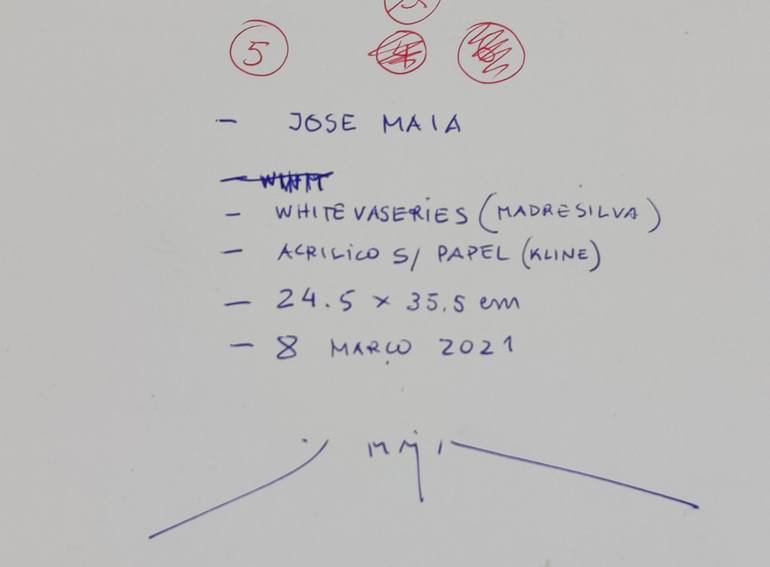 5
- JOSE MAIA
- WHITE VASERIES (MADRESILVA)
- ACRILICO S/ PAPEL (KLINE)
- 24.5 x 35.5 cm
- 8 MARCO 2021